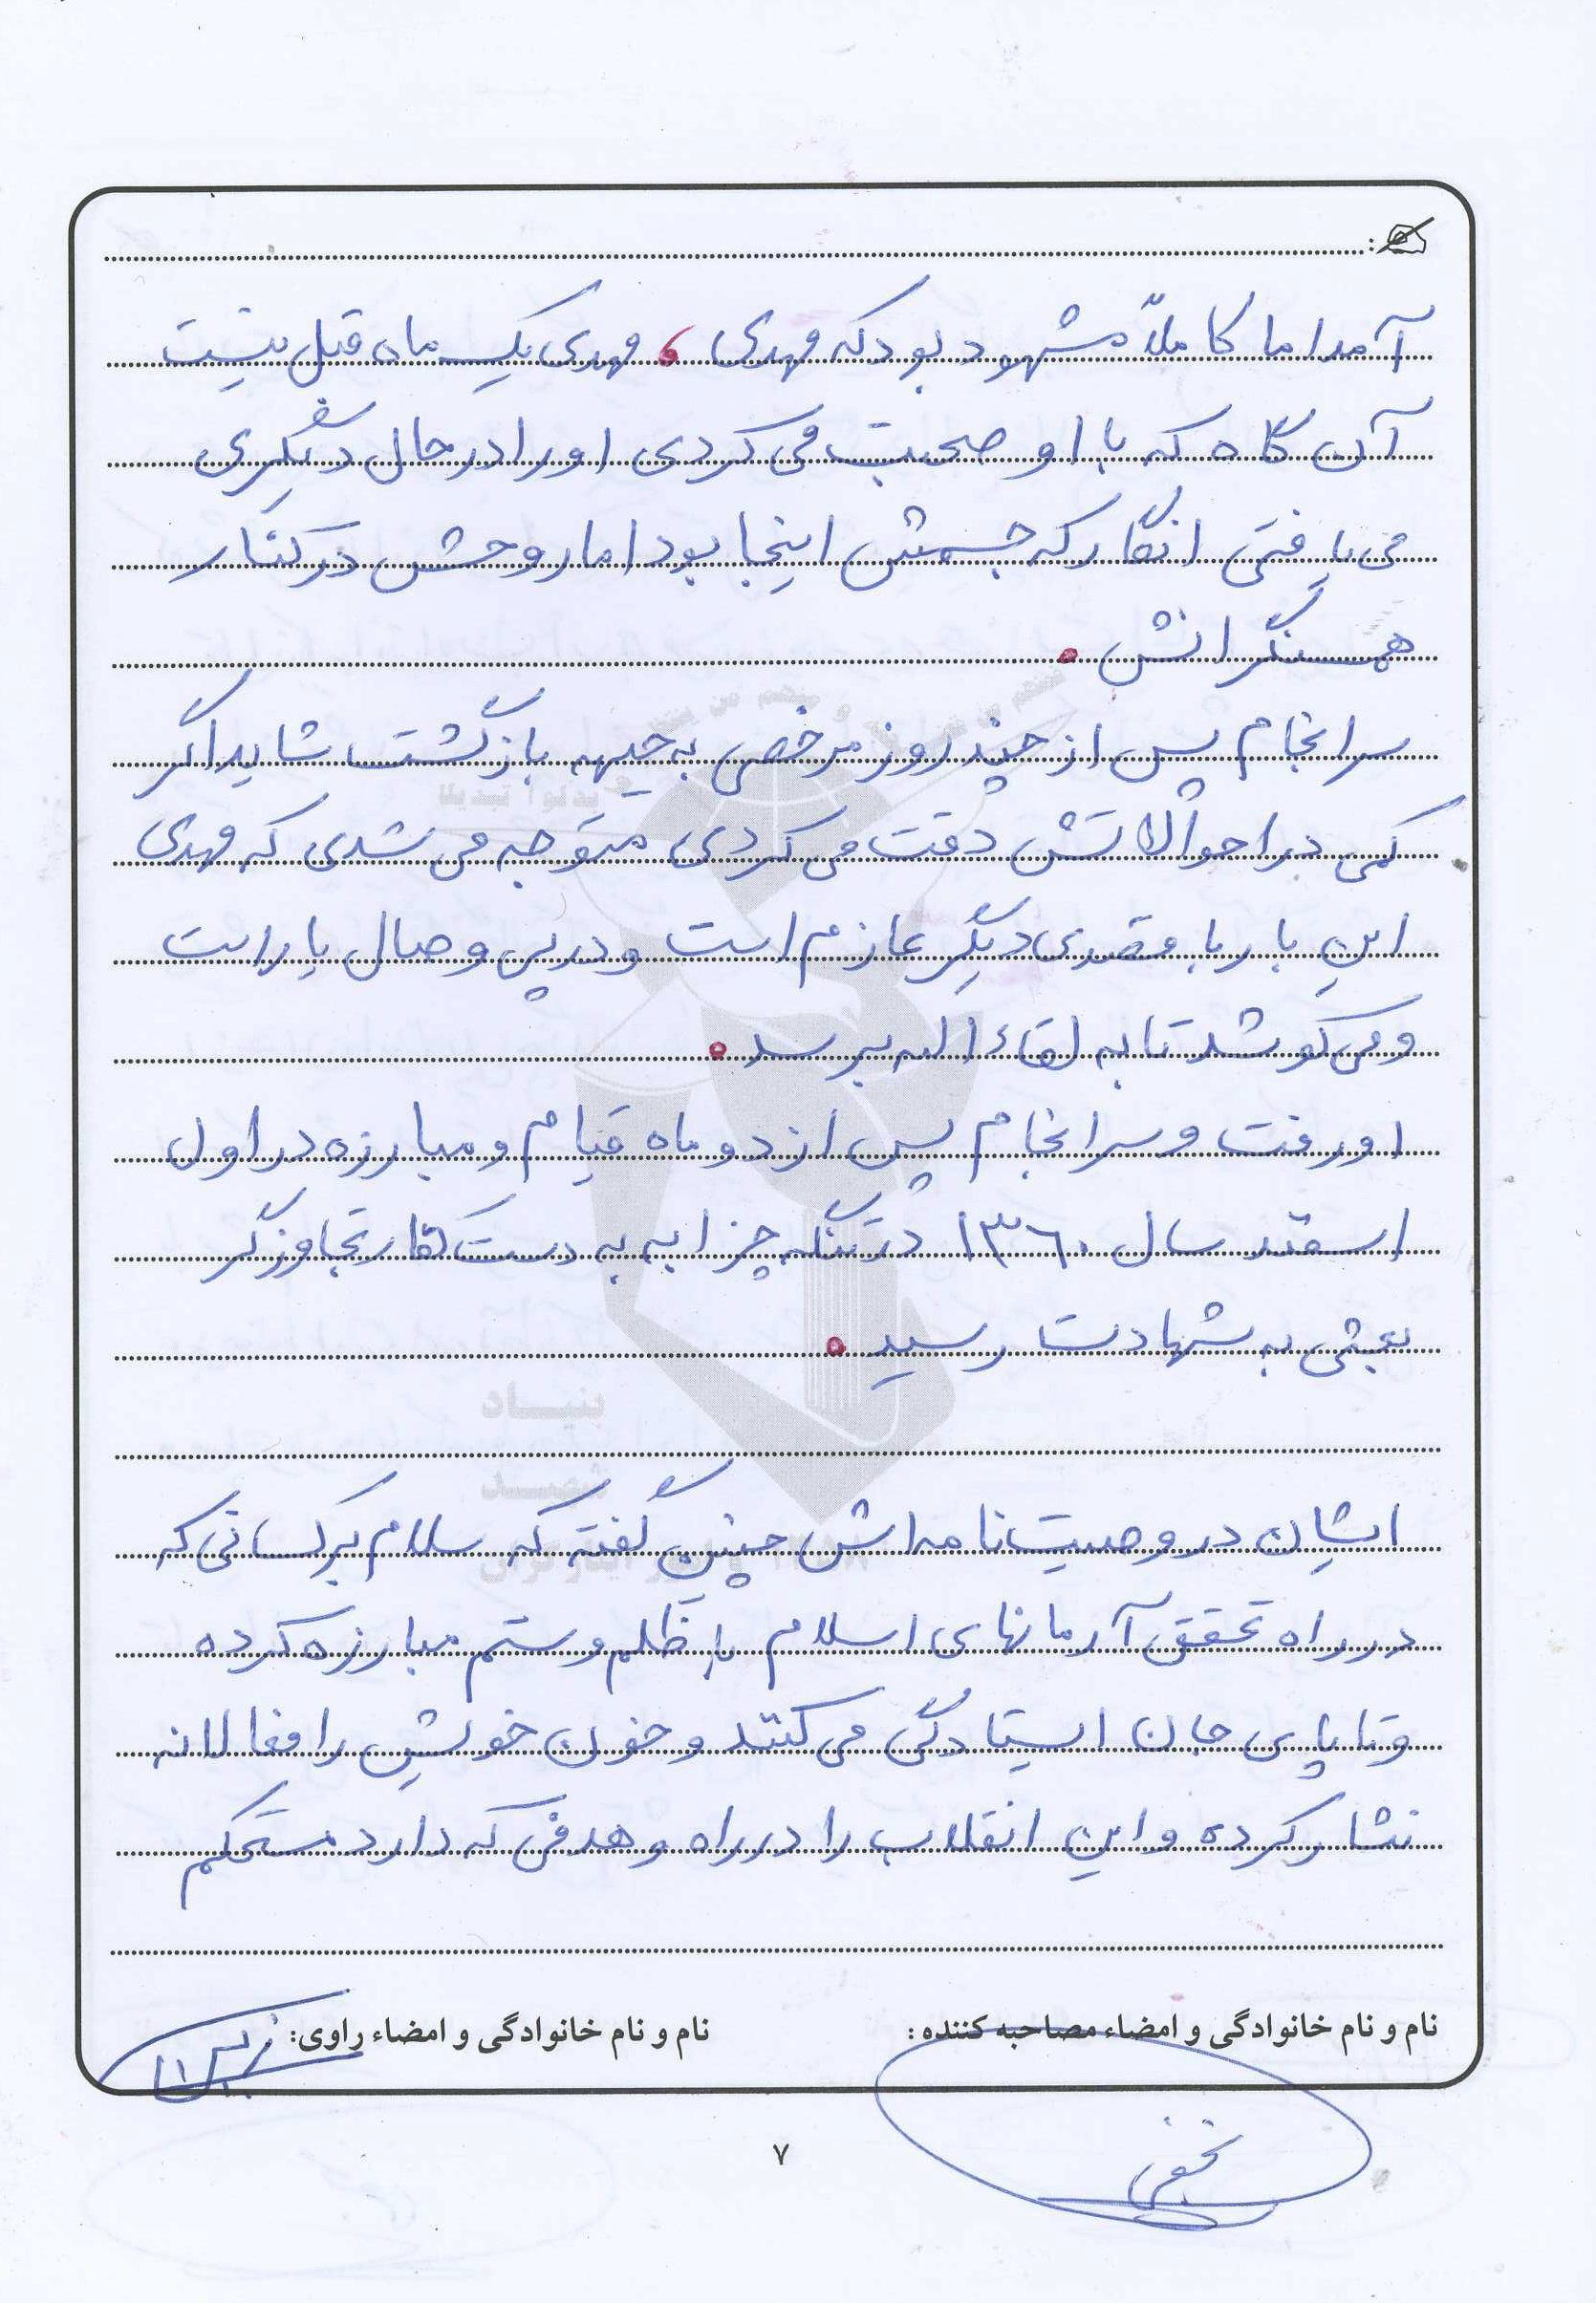 آمد اما کاملاً مشهود بود که مهدی ، مهدی یک ماه قبل نیست
آن گاه که با او صحبت می کردی او را در حال دیگری
می یافتی انگار که جسمش اینجا بود اما روحش در کنار
همسنگرانش .
سرانجام پس از چند روز مرخصی به جبهه بازگشت شاید اگر
کمی در احوالاتش دقت می کردی متوجه می شدی که مهدی
این بار با مقصدی دیگر عازم است و در پی وصال یار است
و می کوشد تا به لقاء الله برسد .
او رفت و سرانجام پس از دو ماه قیام و مبارزه در اول
اسفند سال ۱۳۶۰ در تنگه چزابه به دست کفار تجاوزگر
بعثی به شهادت رسید .
ایشان در وصیت نامه اش چنین گفته که سلام بر کسانی که
در راه تحقق آرمانهای اسلام با ظلم و ستم مبارزه کرده
و تا پای جان ایستادگی می کنند و خون خویش را
نثار کرده و این انقلاب را در راه و هدفی که دارد مستحکم
نام و نام خانوادگی و امضاء مصاحبه کننده: نام و نام خانوادگی و امضاء راوی:
نجفی
۷